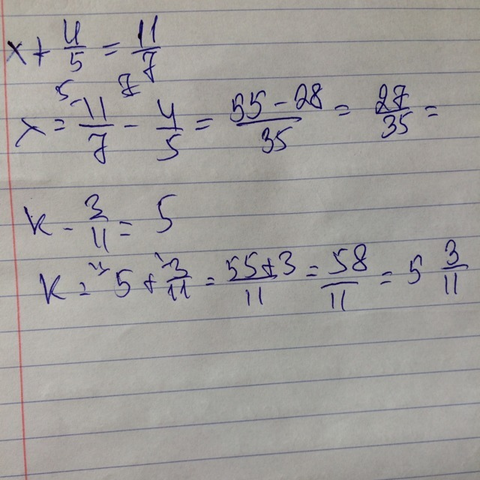 x + 4/5 = 11/7
x = ⁵⁻11/7 - ⁷4/5 = 55-28/35 = 27/35 =
k - 3/11 = 5
k = ¹¹5 + ¹3/11 = 55+3/11 = 58/11 = 5 3/11